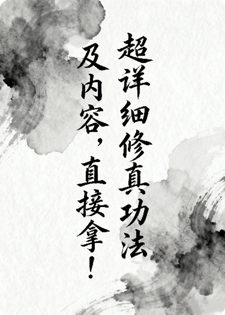 超详细修真功法
及内容，直接拿！